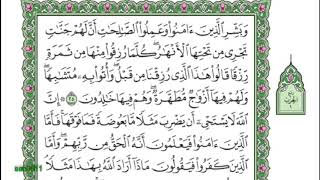 وَبَشِّرِ الَّذِينَ ءَامَنُوا وَعَمِلُوا الصَّٰلِحَٰتِ أَنَّ لَهُمْ جَنَّٰتٍ
تَجْرِي مِن تَحْتِهَا الْأَنْهَٰرُ كُلَّمَا رُزِقُوا مِنْهَا مِن ثَمَرَةٍ
رِّزْقًا قَالُوا هَٰذَا الَّذِي رُزِقْنَا مِن قَبْلُ وَأُتُوا بِهِ مُتَشَٰبِهًا
وَلَهُمْ فِيهَا أَزْوَٰجٌ مُّطَهَّرَةٌ وَهُمْ فِيهَا خَٰلِدُونَ ٢٥ إِنَّ
اللَّهَ لَا يَسْتَحْيِ أَن يَضْرِبَ مَثَلًا مَّا بَعُوضَةً فَمَا فَوْقَهَا فَأَمَّا
الَّذِينَ ءَامَنُوا فَيَعْلَمُونَ أَنَّهُ الْحَقُّ مِن رَّبِّهِمْ وَأَمَّا
الَّذِينَ كَفَرُوا فَيَقُولُونَ مَاذَا أَرَادَ اللَّهُ بِهَٰذَا مَثَلًا